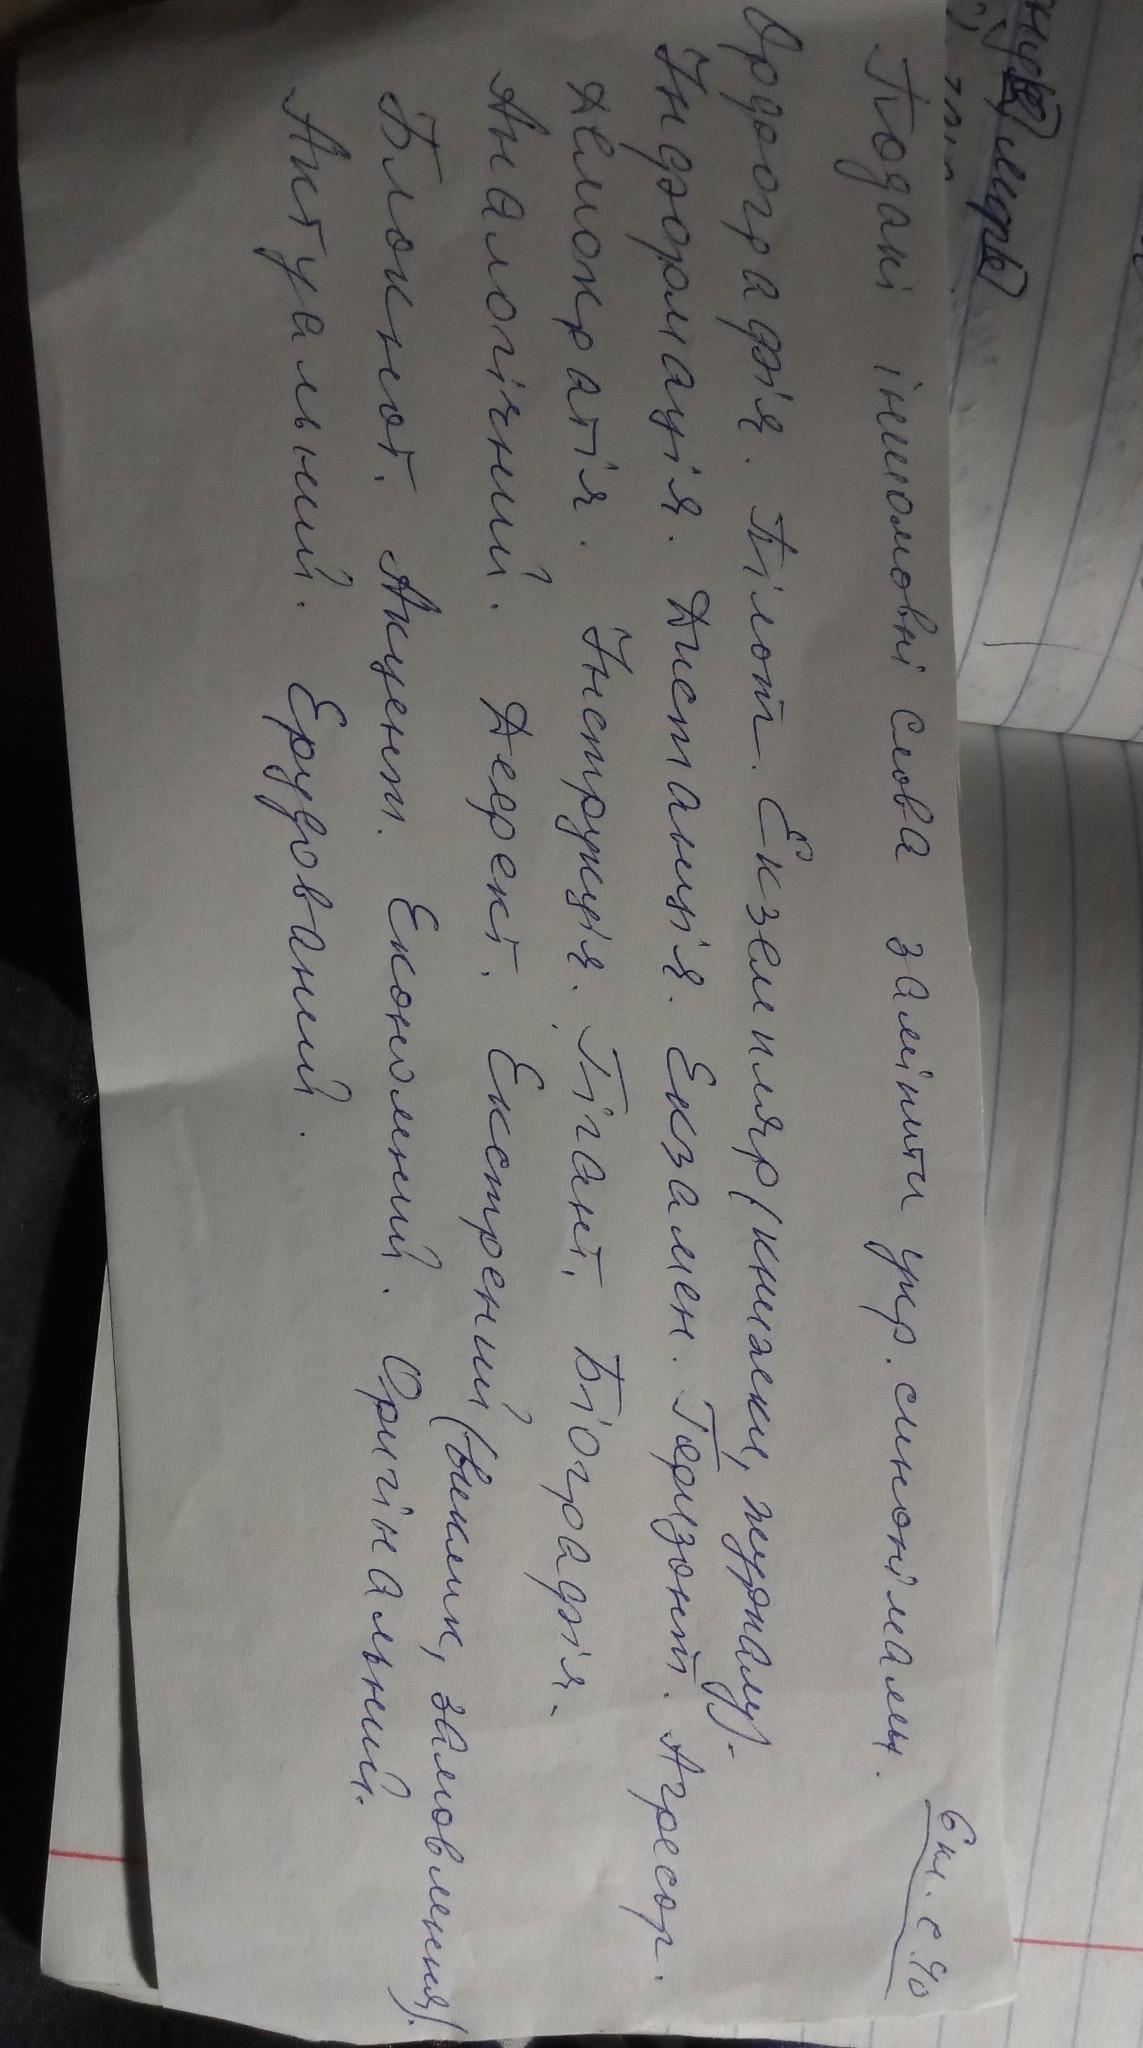 6 кл. с. 40
Подані іншомовні слова замінити укр. синонімами.
Орфографія. Пілот. Екземпляр (книжки, журналу).
Інформація. Дистанція. Екзамен. Горизонт. Агресор.
Демократія. Інструкція. Гігант. Біографія.
Аналогічний. Дефект. Екстрений (виклик, замовлення).
Блокнот. Акцент. Економний. Оригінальний.
Актуальний. Ерудований.